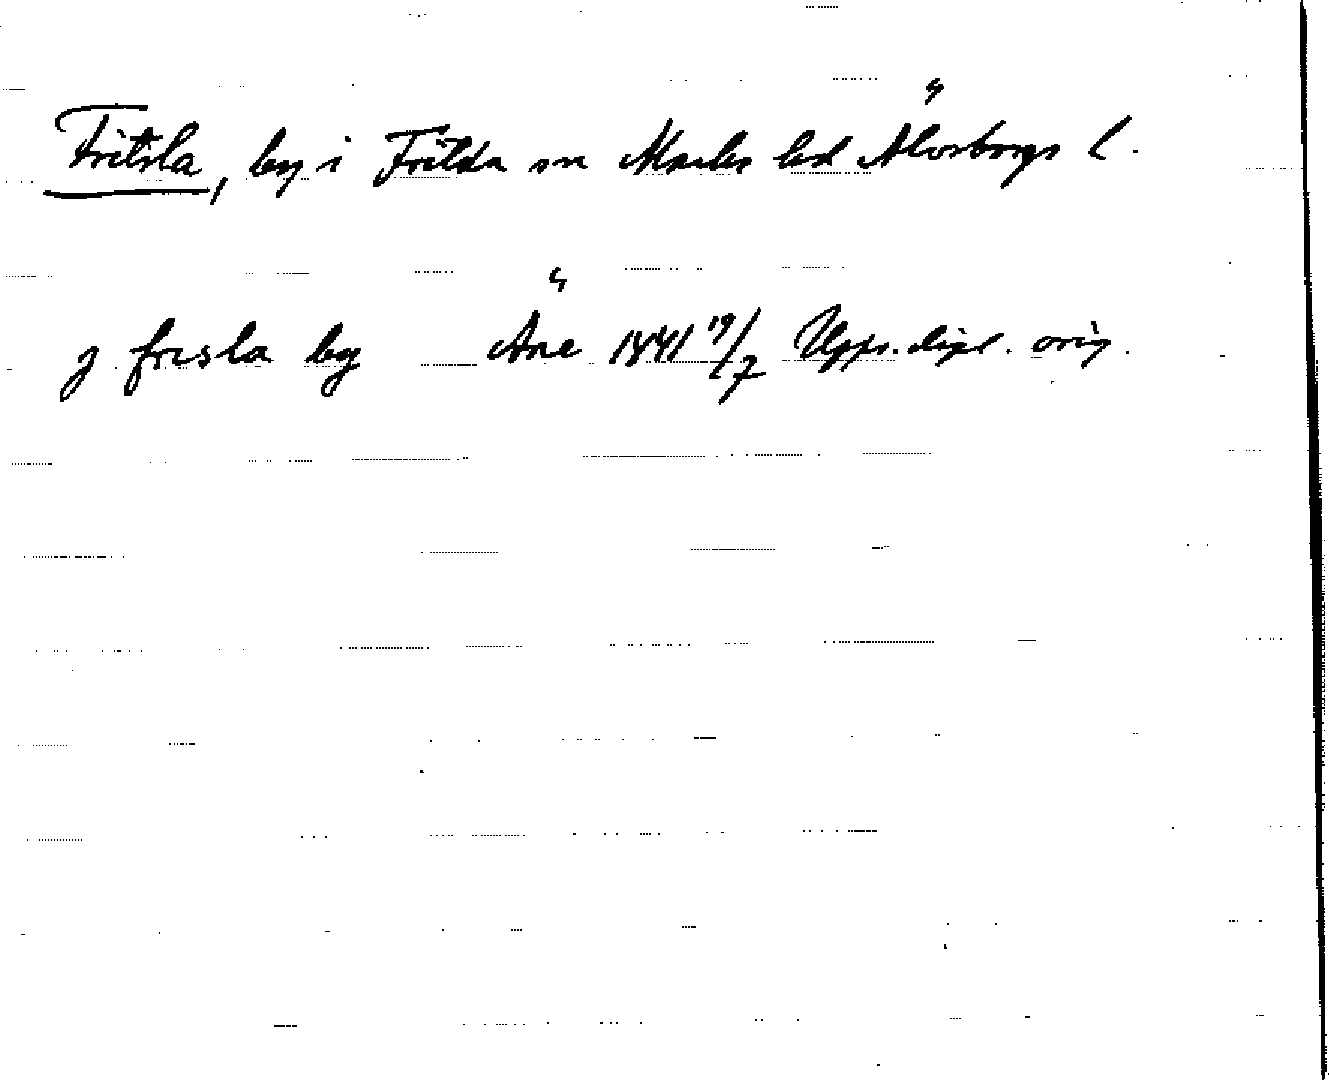 Fritsla, by i Fritsla sn Marks hd Älvsborgs l.
j frisla by Äne 1441 19/7 Upps. dipl. orig.